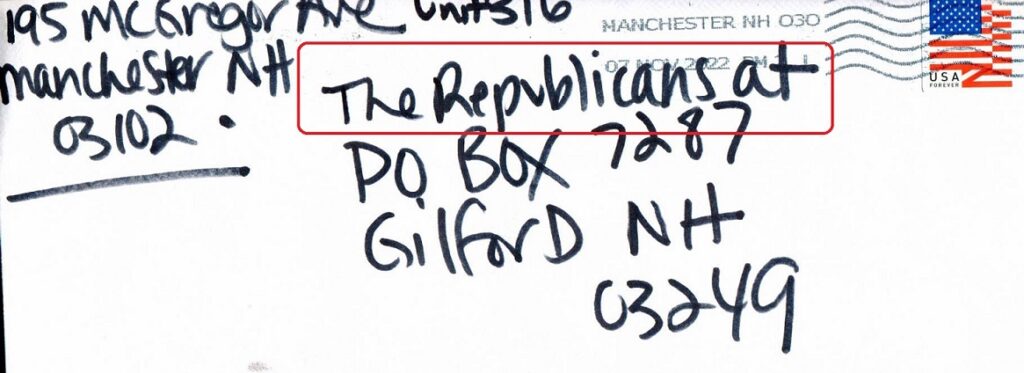 195 McGregor Ave Unit 316
Manchester NH
03102.
MANCHESTER NH 030
07 NOV 2022 PM
The Republicans at
PO BOX 7287
GilforD NH
03249
USA
FOREVER